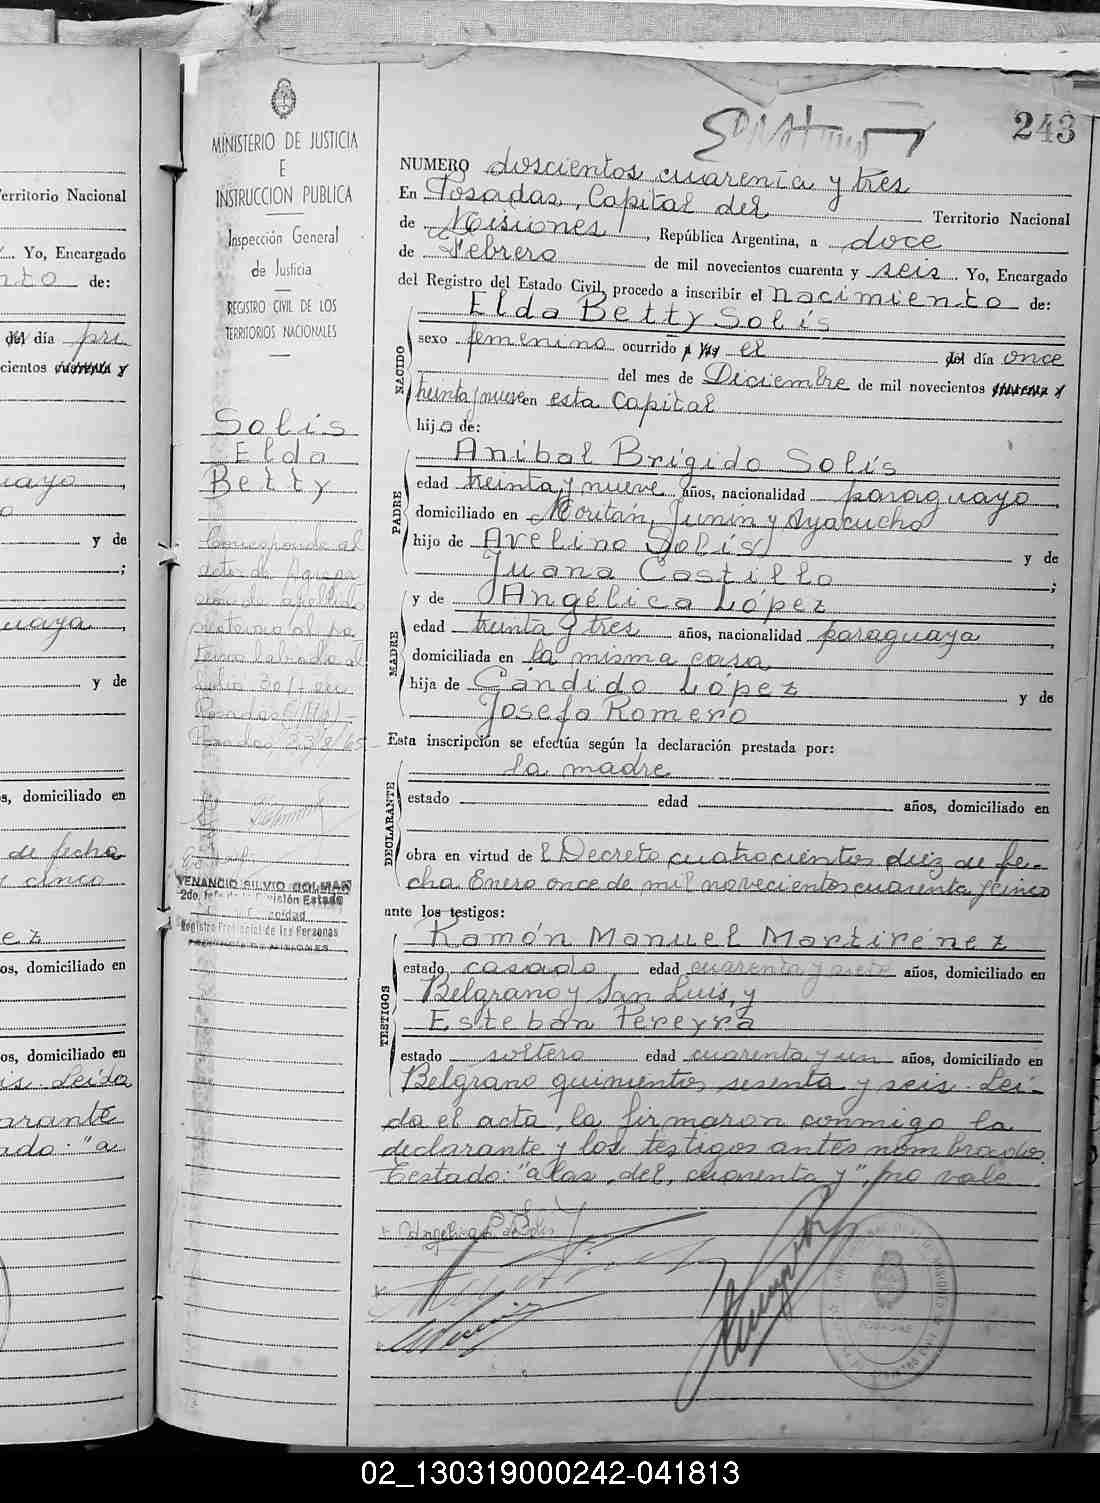 erritorio Nacional
Yo, Encargado
nto de:
del día pri
cientos cuarenta y
uayo
y de
;
uaya
y de
s, domiciliado en
de fecha
y cinco
ez
os, domiciliado en
os, domiciliado en
is. Leída
arante
ado: "a
MINISTERIO DE JUSTICIA
E
INSTRUCCION PUBLICA
Inspección General
de Justicia
REGISTRO CIVIL DE LOS
TERRITORIOS NACIONALES
Solís
Elda
Betty
Corresponde al
acta de
apellido
paterno al
labrada al
folio 30
Posadas
Posadas, 23/8/65
VENANCIO SILVIO DOLMAN
2do. Jefe División Estado
Registro Provincial de las Personas
PROVINCIA DE MISIONES
243
NUMERO doscientos cuarenta y tres
En Posadas, Capital del Territorio Nacional
de Misiones, República Argentina, a doce
de Febrero de mil novecientos cuarenta y seis Yo, Encargado
del Registro del Estado Civil, procedo a inscribir el nacimiento de:
Elda Betty Solís
NACIDO
sexo femenino ocurrido a las el del día once
del mes de Diciembre de mil novecientos cuarenta y
treinta y nueve en esta Capital
hija de:
PADRE
Anibal Brígido Solís
edad treinta y nueve años, nacionalidad paraguayo
domiciliado en Moritán, Junín y Ayacucho
hijo de Avelino Solís y de
Juana Costillo ;
MADRE
y de Angélica López
edad treinta y tres años, nacionalidad paraguaya
domiciliada en la misma casa
hija de Cándido López y de
Josefa Romero
Esta inscripción se efectúa según la declaración prestada por:
DECLARANTE
la madre
estado edad años, domiciliado en
obra en virtud de l Decreto cuatrocientos diez de fe-
cha Enero once de mil novecientos cuarenta y cinco
ante los testigos:
TESTIGOS
Ramón Manuel Martirénez
estado casado edad cuarenta y siete años, domiciliado en
Belgrano y San Luis, y
Esteban Pereyra
estado soltero edad cuarenta y un años, domiciliado en
Belgrano quinientos sesenta y seis. Leí-
da el acta, la firmaron conmigo la
declarante y los testigos antes nombrados.
Testado: "a las, del, cuarenta y", no vale
02_130319000242-041813